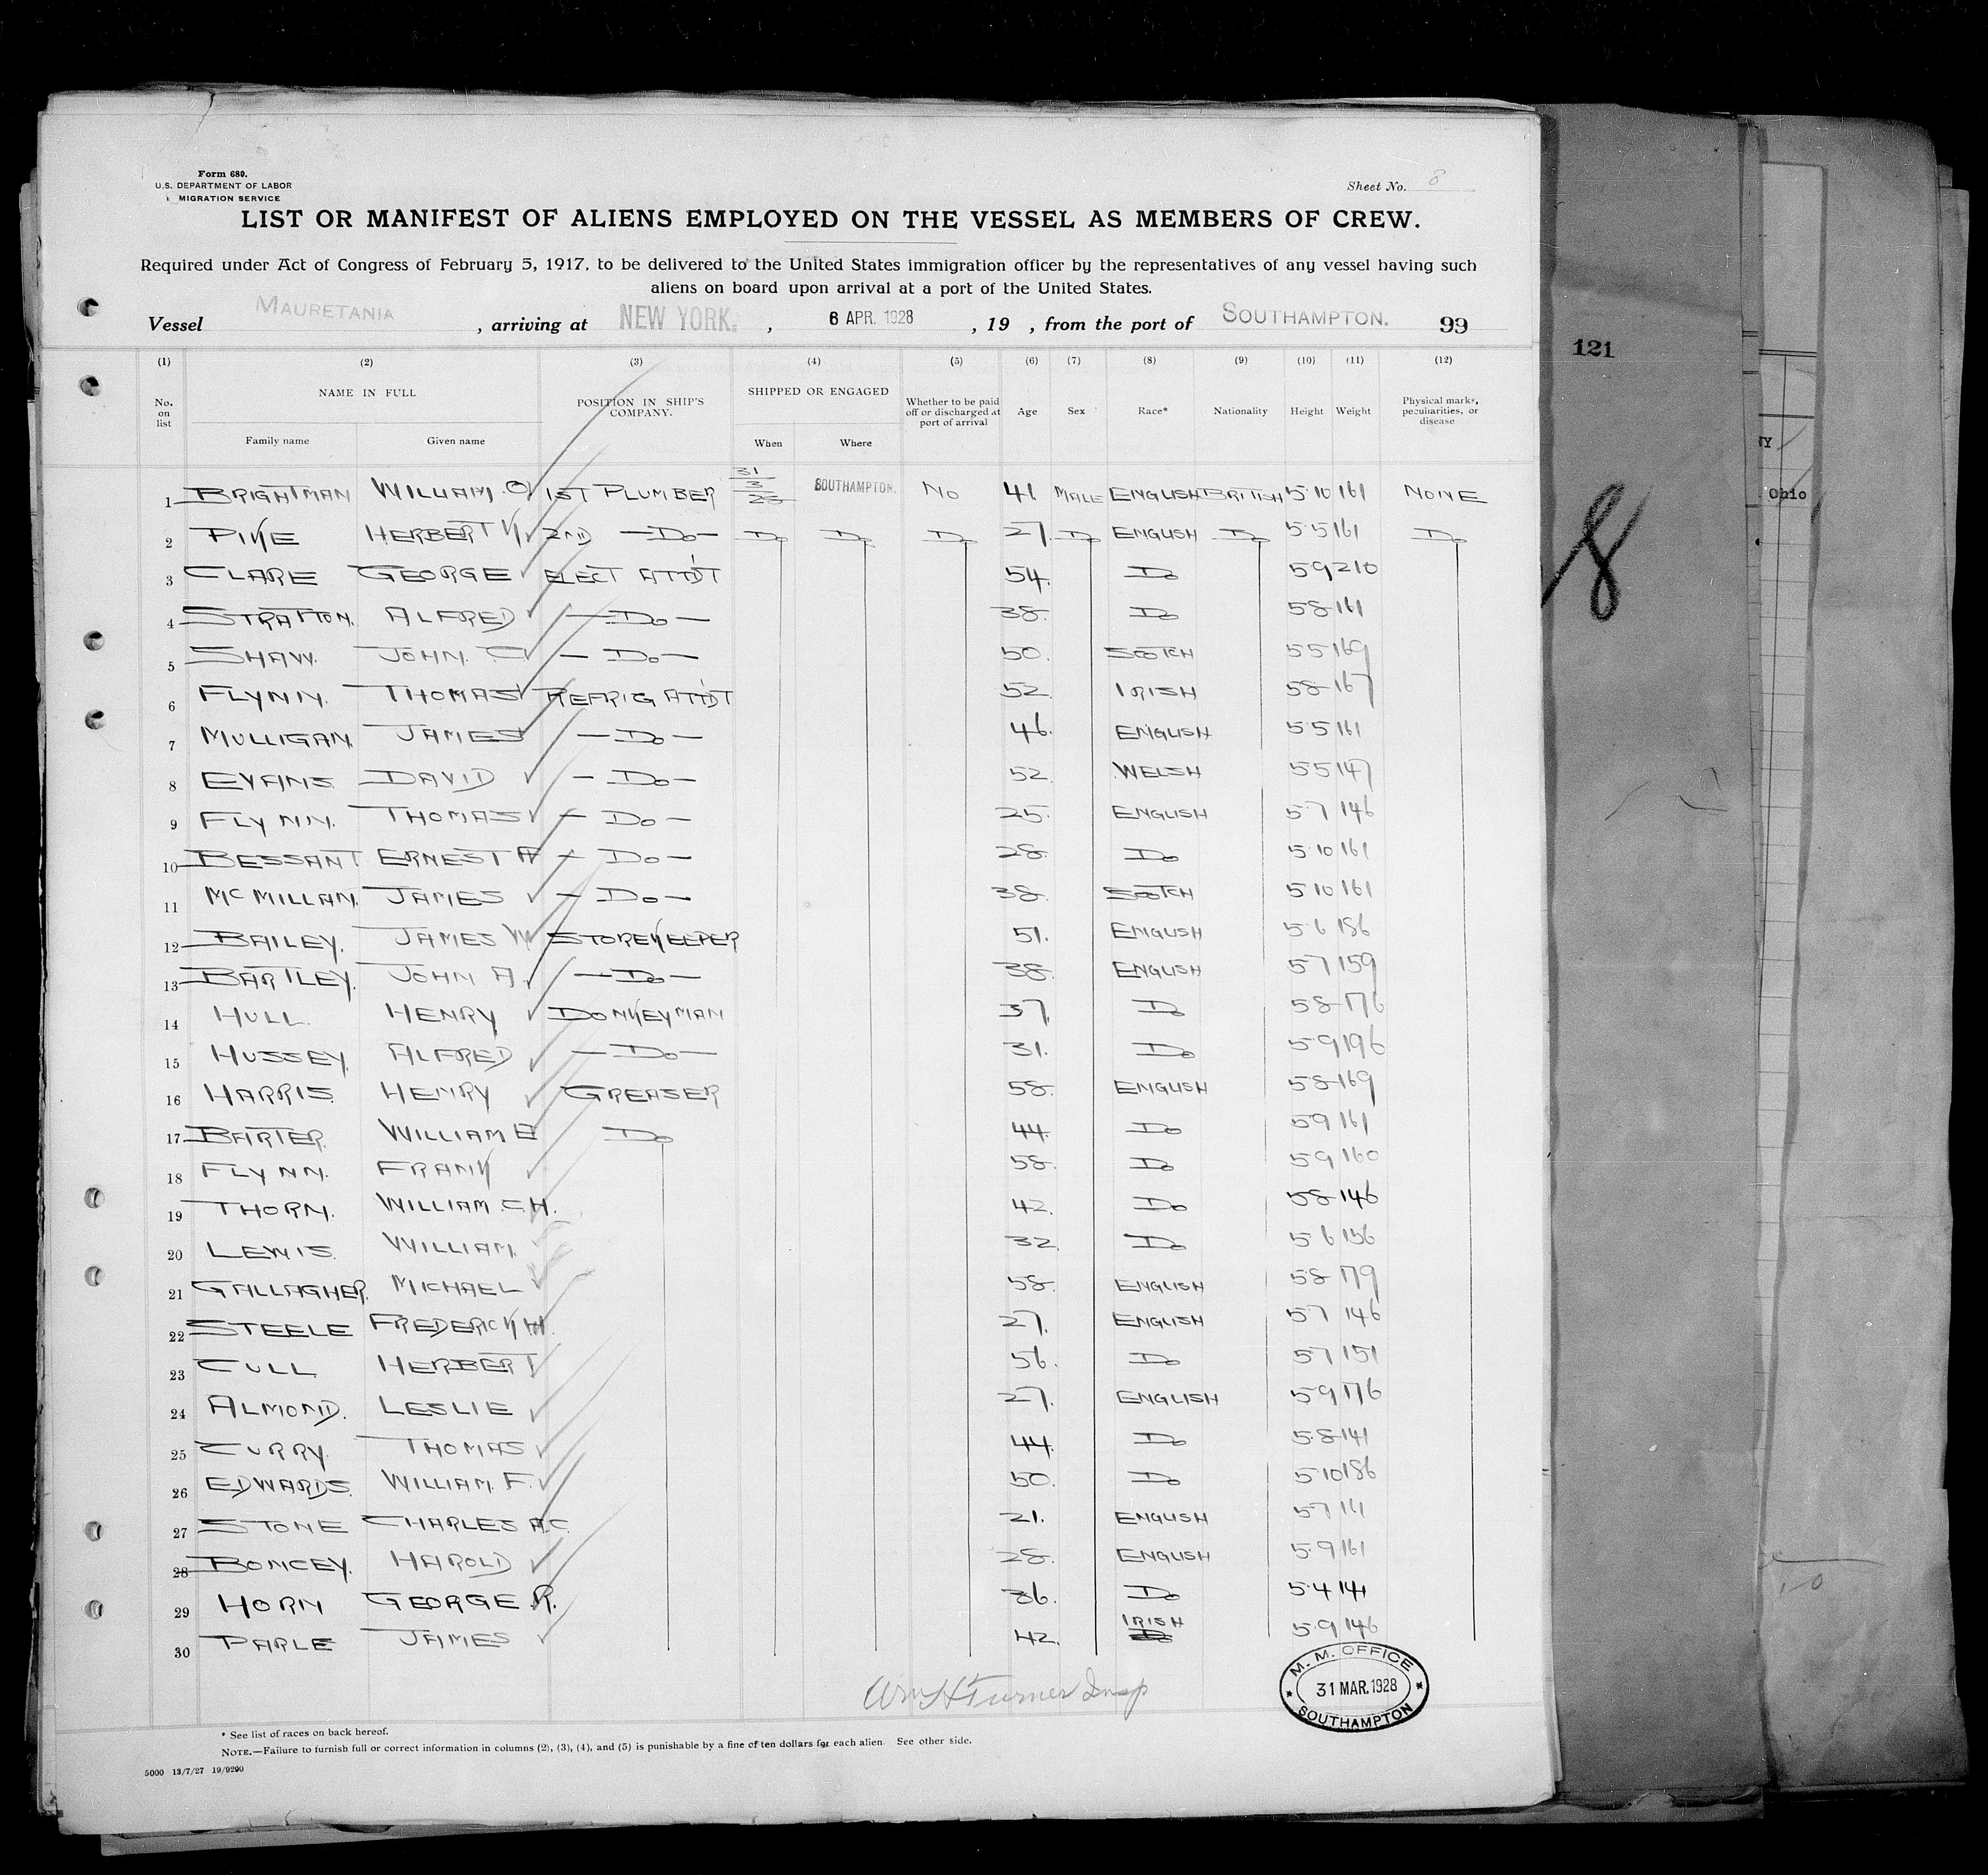 Form 680.
U.S. DEPARTMENT OF LABOR
MIGRATION SERVICE
Sheet No. 8
LIST OR MANIFEST OF ALIENS EMPLOYED ON THE VESSEL AS MEMBERS OF CREW.
Required under Act of Congress of February 5, 1917, to be delivered to the United States immigration officer by the representatives of any vessel having such
aliens on board upon arrival at a port of the United States.
Vessel MAURETANIA , arriving at NEW YORK. , 6 APR. 1928 , 19 , from the port of SOUTHAMPTON. 99
121
(1) (2) (3) (4) (5) (6) (7) (8) (9) (10) (11) (12)
No. on list NAME IN FULL Family name Given name POSITION IN SHIP'S COMPANY. SHIPPED OR ENGAGED When Where Whether to be paid off or discharged at port of arrival Age Sex Race* Nationality Height Weight Physical marks, peculiarities, or disease
1 BRIGHTMAN WILLIAM. O 1ST PLUMBER 31/3/28 SOUTHAMPTON. NO 41 MALE ENGLISH BRITISH 5.10 161 NONE
2 PIKE HERBERT K 2ND —DO— DO DO DO 27. DO ENGLISH DO 5.5 161 DO
3 CLARE GEORGE ELECT ATTDT 54. DO 5 9 210
4 STRATTON. ALFRED —DO— 38. DO 5 8 161
5 SHAW. JOHN. C —DO— 50. SCOTCH 5 5 169
6 FLYNN. THOMAS REFRIG ATTDT 52. IRISH 5 8 167
7 MULLIGAN. JAMES —DO— 46. ENGLISH 5 5 161
8 EVANS. DAVID —DO— 52. WELSH 5 5 147
9 FLYNN. THOMAS —DO— 25. ENGLISH 5.7 146
10 BESSANT ERNEST A —DO— 28. DO 5.10 161
11 MCMILLAN. JAMES —DO— 38. SCOTCH 5 10 161
12 BAILEY. JAMES W STOREKEEPER 51. ENGLISH 5.6 186
13 BARTLEY. JOHN A. —DO— 38. ENGLISH 5 7 159
14 HULL. HENRY DONKEYMAN 37. DO 5 8 176
15 HUSSEY. ALFRED —DO— 31. DO 5 9 196
16 HARRIS. HENRY GREASER 58. ENGLISH 5 8 169
17 BARTER. WILLIAM E DO 44. DO 5 9 161
18 FLYNN. FRANK 58. DO 5 9 160
19 THORN. WILLIAM. C.H. 42. DO 5 8 146
20 LEWIS. WILLIAM. 32. DO 5 6 156
21 GALLAGHER. MICHAEL 58. ENGLISH 5 8 179
22 STEELE FREDERICK H. 27. ENGLISH 5 7 146
23 CULL HERBERT 56. DO 5 7 151
24 ALMOND. LESLIE 27. ENGLISH 5 9 176
25 CURRY. THOMAS 44. DO 5.8 141
26 EDWARDS. WILLIAM. F. 50. DO 5.10 186
27 STONE CHARLES A.C. 21. ENGLISH 5.7
28 BONCEY. HAROLD 28. ENGLISH 5.9 161
29 HORN GEORGE. R. 36. DO 5.4 141
30 PARLE JAMES 42. IRISH 5.9 146
Wm H Turner Insp
M. M. OFFICE
31 MAR. 1928
SOUTHAMPTON
* See list of races on back hereof.
NOTE.—Failure to furnish full or correct information in columns (2), (3), (4), and (5) is punishable by a fine of ten dollars for each alien. See other side.
5000 13/7/27 19/9290
8
Ohio